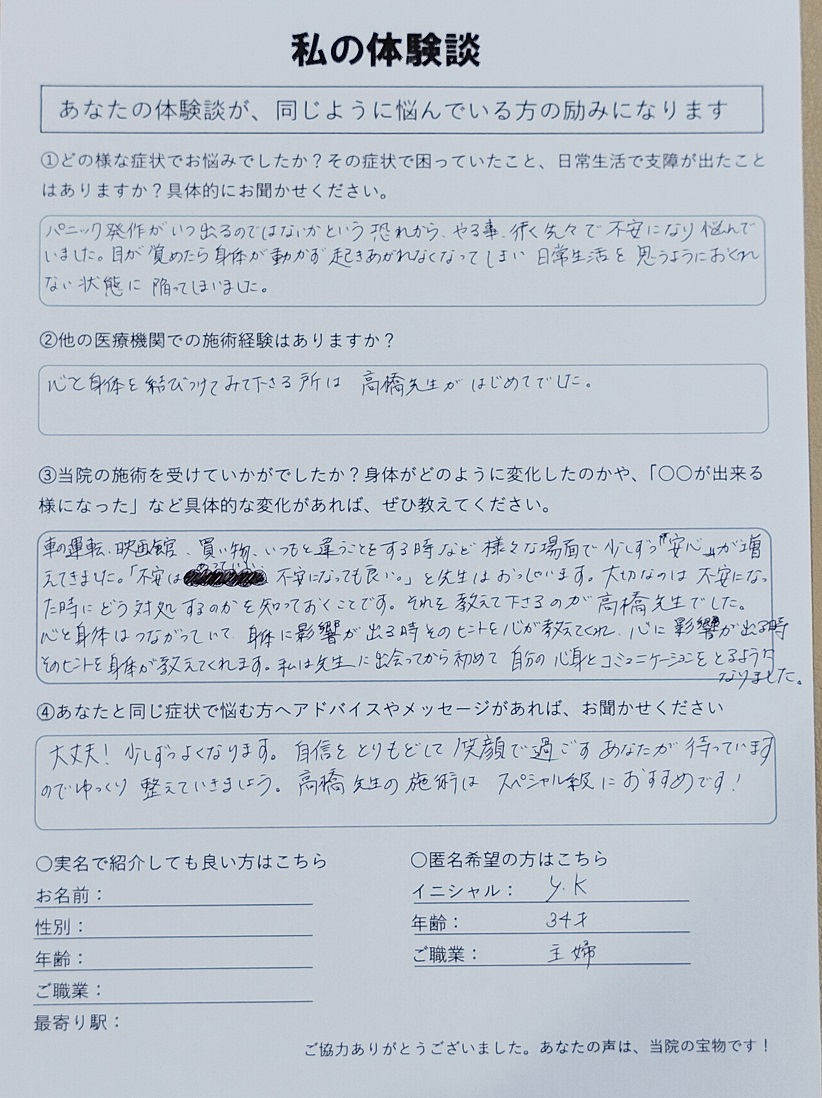 私の体験談
あなたの体験談が、同じように悩んでいる方の励みになります
①どの様な症状でお悩みでしたか？その症状で困っていたこと、日常生活で支障が出たこと
はありますか？具体的にお聞かせください。
パニック発作がいつ出るのではないかという恐れから、やる事、行く先々で不安になり悩んで
いました。目が覚めたら身体が動かず起きあがれなくなってしまい日常生活を思うようにおくれ
ない状態に陥ってしまいました。
②他の医療機関での施術経験はありますか？
心と身体を結びつけてみて下さる所は高橋先生がはじめてでした。
③当院の施術を受けていかがでしたか？身体がどのように変化したのかや、「〇〇が出来る
様になった」など具体的な変化があれば、ぜひ教えてください。
車の運転、映画館、買い物、いつもと違うことをする時など様々な場面で少しずつ『安心』が増
えてきました。「不安はあっていい、不安になっても良い。」と先生はおっしゃいます。大切なのは不安になっ
た時にどう対処するのかを知っておくことです。それを教えて下さるのが高橋先生でした。
心と身体はつながっていて、身体に影響が出る時そのヒントを心が教えてくれ、心に影響が出る時
そのヒントを身体が教えてくれます。私は先生に出会ってから初めて自分の心身とコミュニケーションをとるように
なりました。
④あなたと同じ症状で悩む方へアドバイスやメッセージがあれば、お聞かせください
大丈夫！少しずつよくなります。自信をとりもどして笑顔で過ごすあなたが待っています
のでゆっくり整えていきましょう。高橋先生の施術はスペシャル級におすすめです！
〇実名で紹介しても良い方はこちら
お名前：
性別：
年齢：
ご職業：
最寄り駅：
〇匿名希望の方はこちら
イニシャル： Y.K
年齢： 34才
ご職業： 主婦
ご協力ありがとうございました。あなたの声は、当院の宝物です！